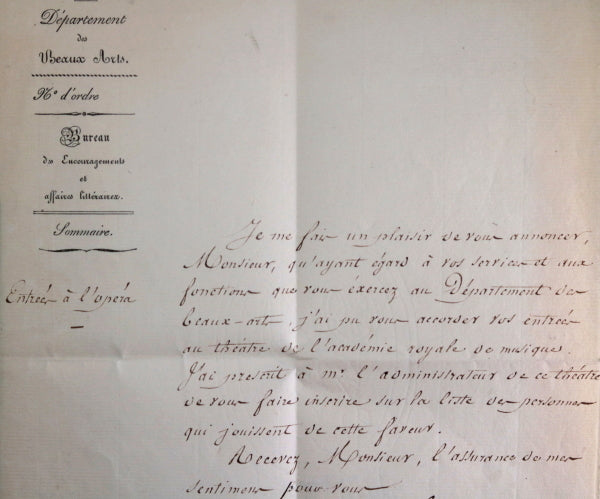 Département
des
Beaux Arts.
N.º d'ordre
Bureau
des Encouragements
et
affaires littéraires.
Sommaire.
Entrées à l'opéra
Je me fais un plaisir de vous annoncer,
Monsieur, qu'ayant égard à vos services et aux
fonctions que vous exercez au Département des
beaux-arts, j'ai pu vous accorder vos entrées
au théâtre de l'académie royale de musique.
J'ai prescrit à mr l'administrateur de ce théâtre
de vous faire inscrire sur la liste des personnes
qui jouissent de cette faveur.
Recevez, Monsieur, l'assurance de mes
sentimens pour vous